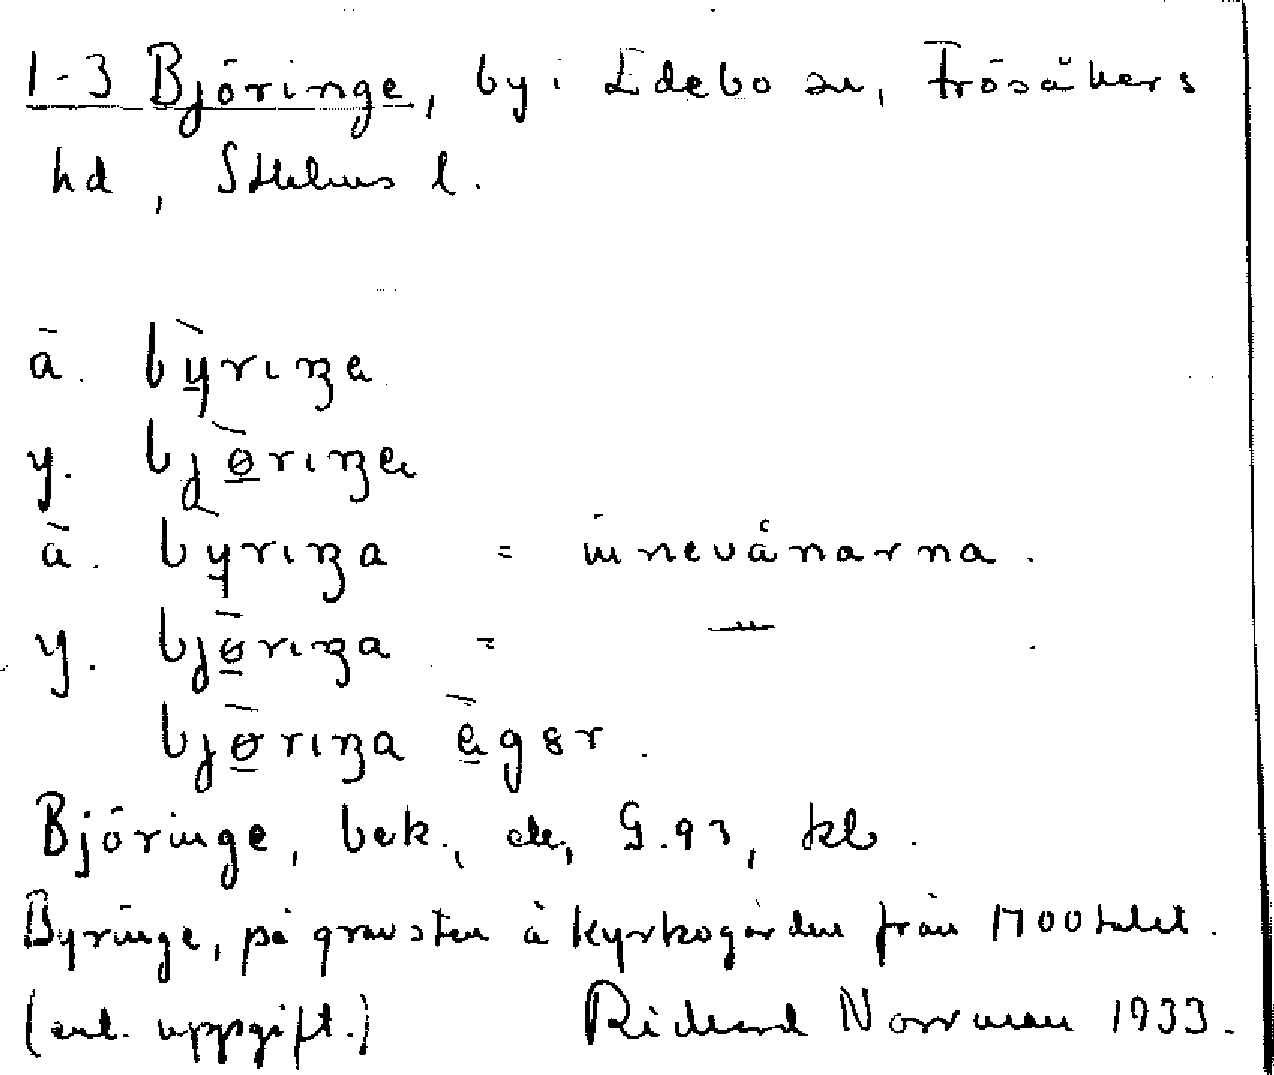 1-3 Björinge, by i Edebo sn, Frösåkers
hd, Sthlms l.
ä. bỳriŋe
y. bjø̀riŋe
ä. bỳriŋa = innevånarna.
y. bjø̀riŋa = —"—
bjø̀riŋa ä̀gər.
Björinge, bek., de, G.93, kb.
Byringe, på gravsten å kyrkogården från 1700 talet.
(enl. uppgift.) Richard Norrman 1933.